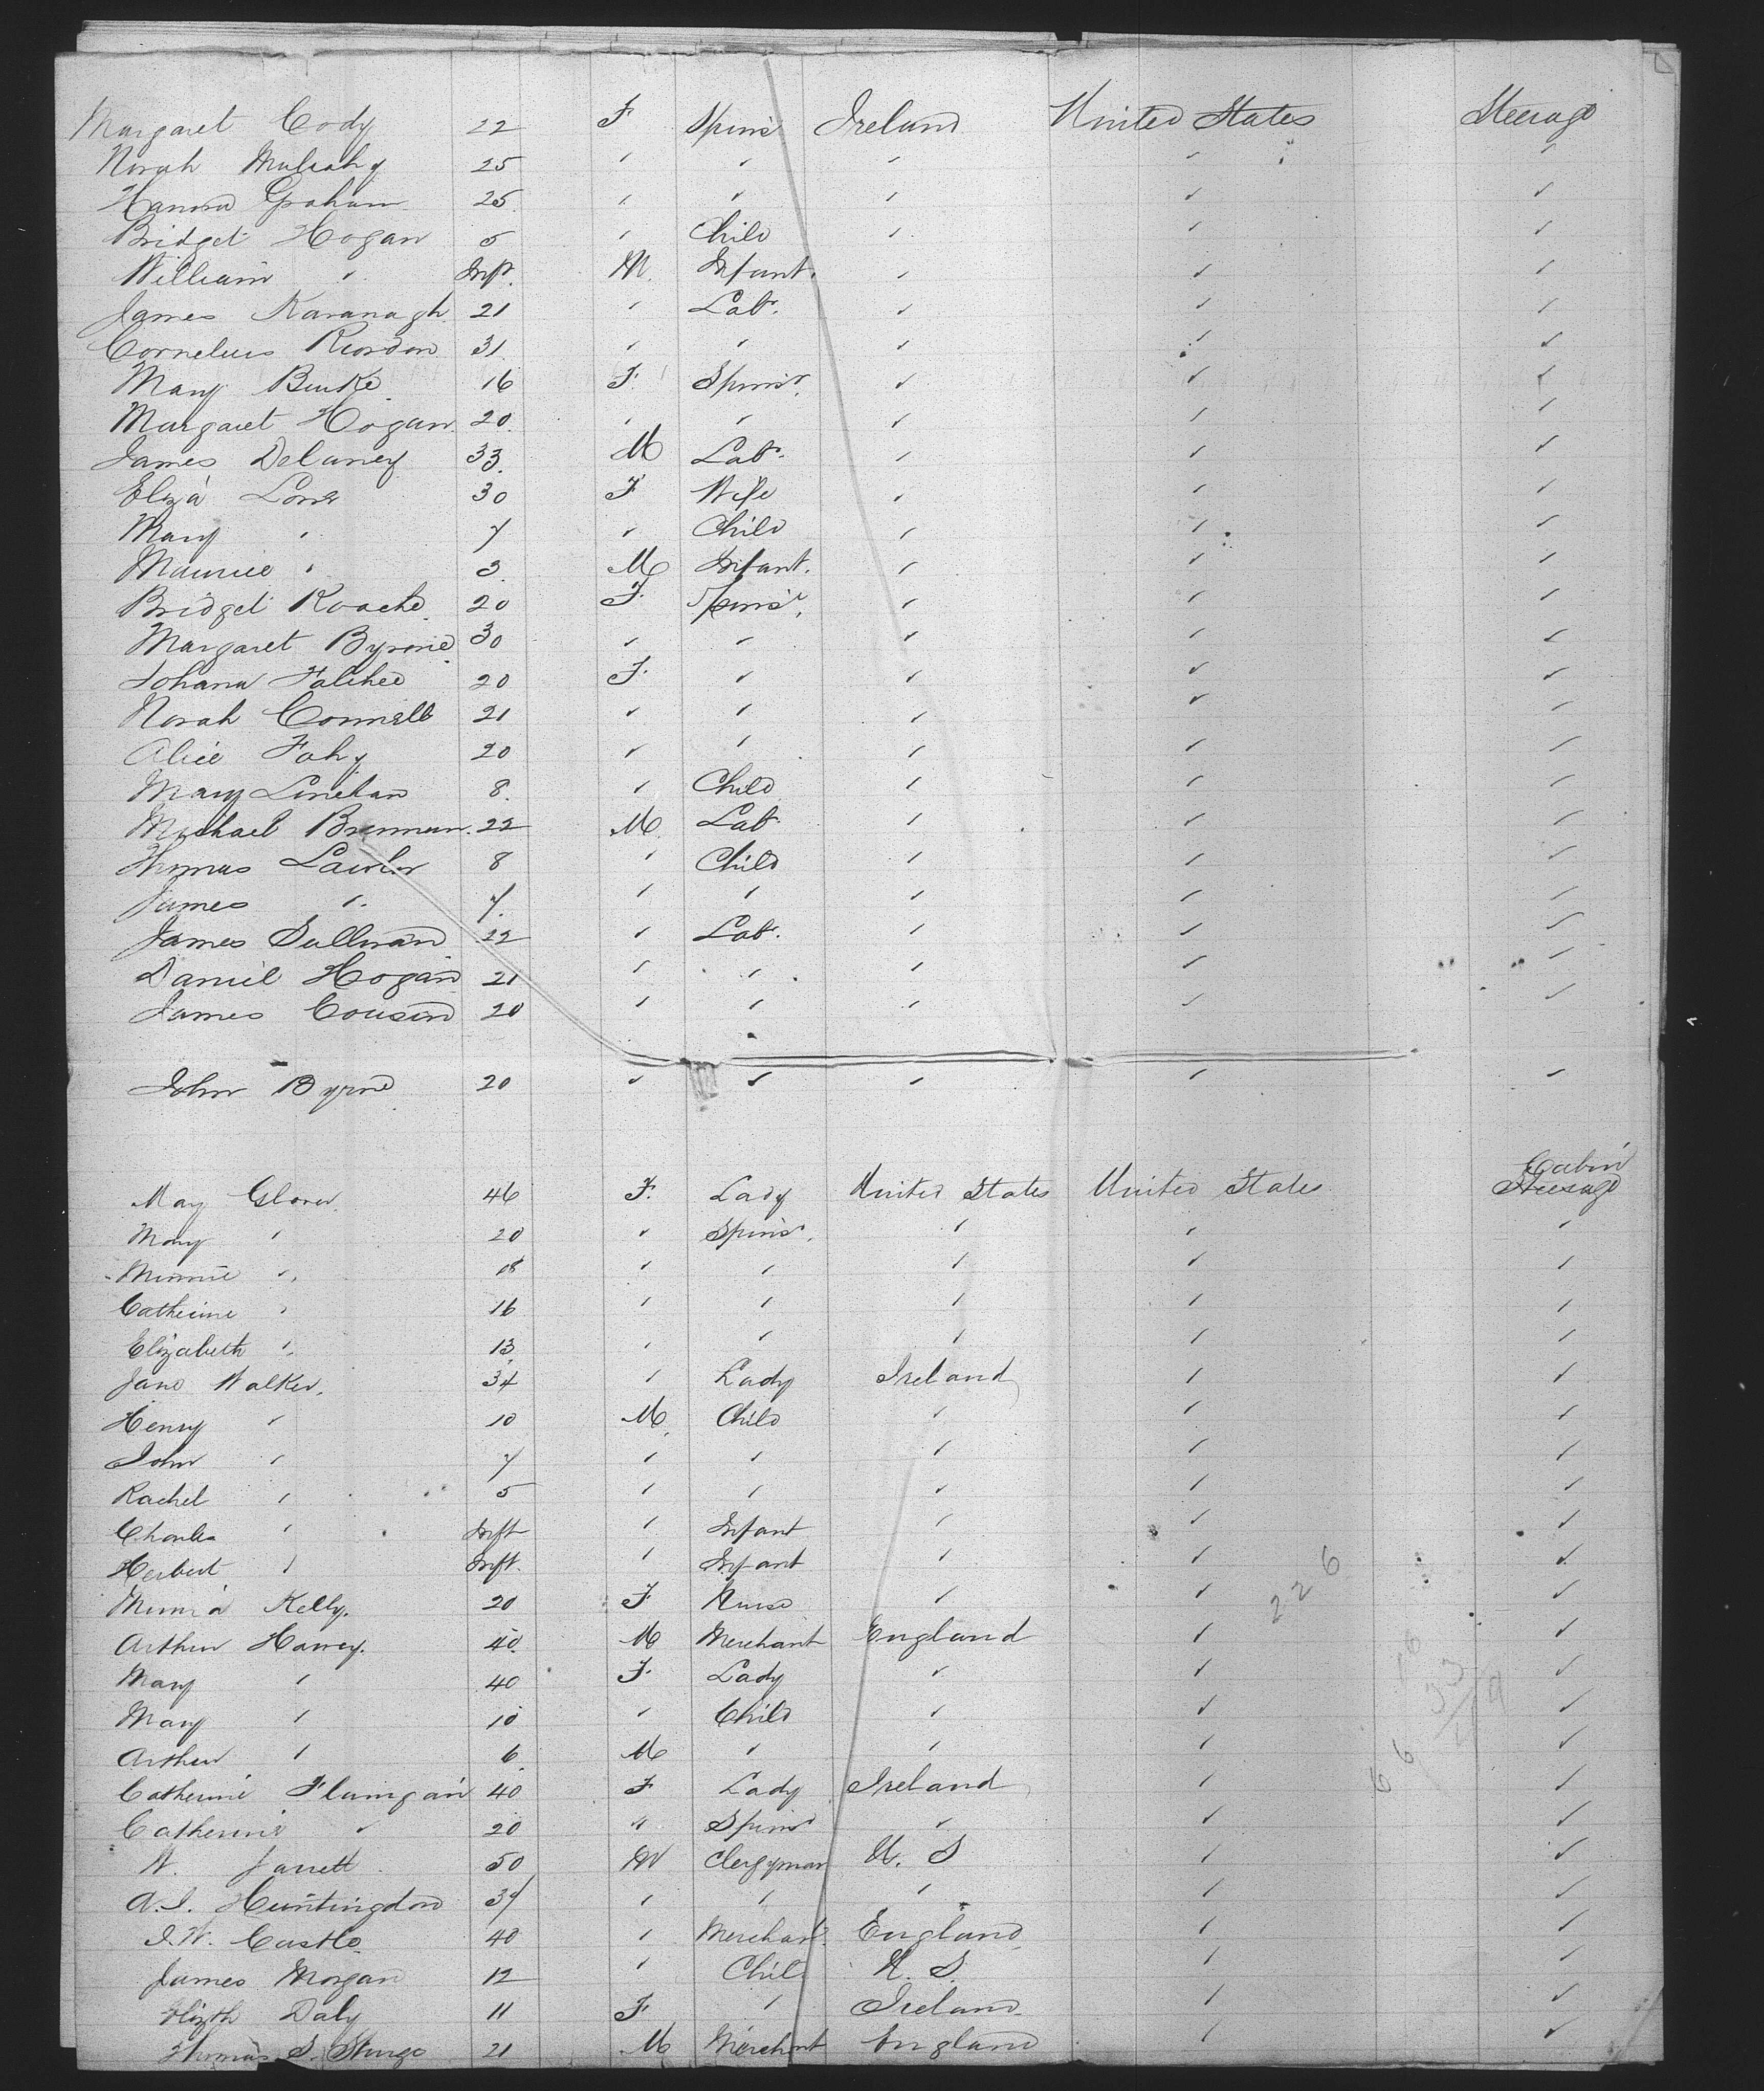 Margaret Cody 22 F Spinsr Ireland United States Steerage
Norah Mulcahy 25 " " " " "
Hanora Graham 25 " " " " "
Bridget Hogan 5 " Child " " "
William " Inft. M. Infant. " " "
James Kavanagh 21 " Labr. " " "
Cornelius Riordon 31 " " " " "
Mary Burke 16 F. Spinsr. " " "
Margaret Hogan 20 " " " " "
James Delaney 33 M Labr. " " "
Eliza 30 F Wife " " "
Mary " 7 " Child " " "
Maurice " 3 M Infant. " " "
Bridget Roache 20 F. Spinsr. " " "
Margaret Byrne 30 " " " " "
Johana 20 F. " " " "
Norah Connell 21 " " " " "
Alice Fahy 20 " " " " "
Mary Linehan 8 " Child " " "
Michael Brennan 22 M. Labr " " "
Thomas Lawlor 8 " Child " " "
James " 7 " " " " "
James Sullivan 22 " Labr. " " "
Daniel Hogan 21 " " " " "
James Cousins 20 " " " " "
John Byrne 20 " " " " "
Cabin
May Glover 46 F. Lady United States United States Steerage
Mary " 20 " Spinsr. " " "
Minnie " 18 " " " " "
Catherine " 16 " " " " "
Elizabeth " 13 " " " " "
Jane Walker. 34 " Lady Ireland " "
Henry " 10 M. Child " " "
John " 7 " " " " "
Rachel " 5 " " " " "
Charles " Inft " Infant " " "
Herbert " Inft. " Infant " " "
Kelly. 20 F Nurse " " "
226
Arthur Harvey. 40 M Merchant England " "
Mary " 40 F. Lady " " "
Mary " 10 " Child " " "
Arthur " 6 M " " " "
66
Catherine Flanigan 40 F Lady Ireland " "
Catherine " 20 " Spinsr " " "
W. Jarrett 50 M Clergyman U. S " "
A.J. Huntingdon 37 " " " " "
J.W. Castle 40 " Merchant England " "
James Morgan 12 " Child U. S. " "
Elizth Daly 11 F " Ireland " "
Thomas S. Sturge 21 M Merchant England " "